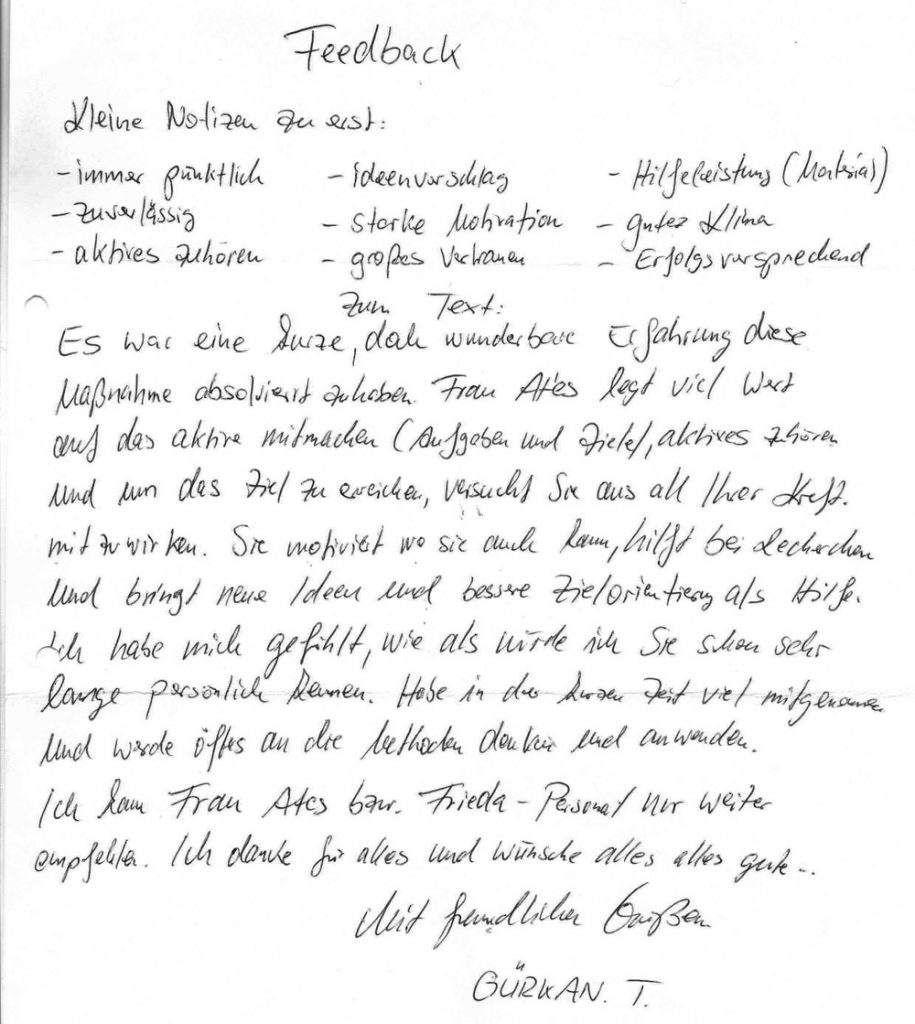 Feedback
Kleine Notizen zu erst:
- immer pünktlich - Ideenvorschlag - Hilfeleistung (Material)
- zuverlässig - starke Motivation - gutes Klima
- aktives zuhören - großes Vertrauen - Erfolgsversprechend
Zum Text:
Es war eine kurze, doch wunderbare Erfahrung diese
Maßnahme absolviert zuhaben. Frau Ates legt viel Wert
auf das aktive mitmachen (Aufgaben und Ziele), aktives zuhören
und um das Ziel zu erreichen, versucht Sie aus all Ihrer Kraft.
mitzuwirken. Sie motiviert wo sie auch kann, hilft bei Recherchen
und bringt neue Ideen und bessere Zielorientierung als Hilfe.
Ich habe mich gefühlt, wie als würde ich Sie schon sehr
lange persönlich kennen. Habe in der kurzen Zeit viel mitgenommen
und werde öfters an die Methoden denken und anwenden.
Ich kann Frau Ates bzw. Frieda-Personal nur weiter
empfehlen. Ich danke für alles und wünsche alles alles gute...
Mit freundlichen Grüßen
GÜRKAN. T.